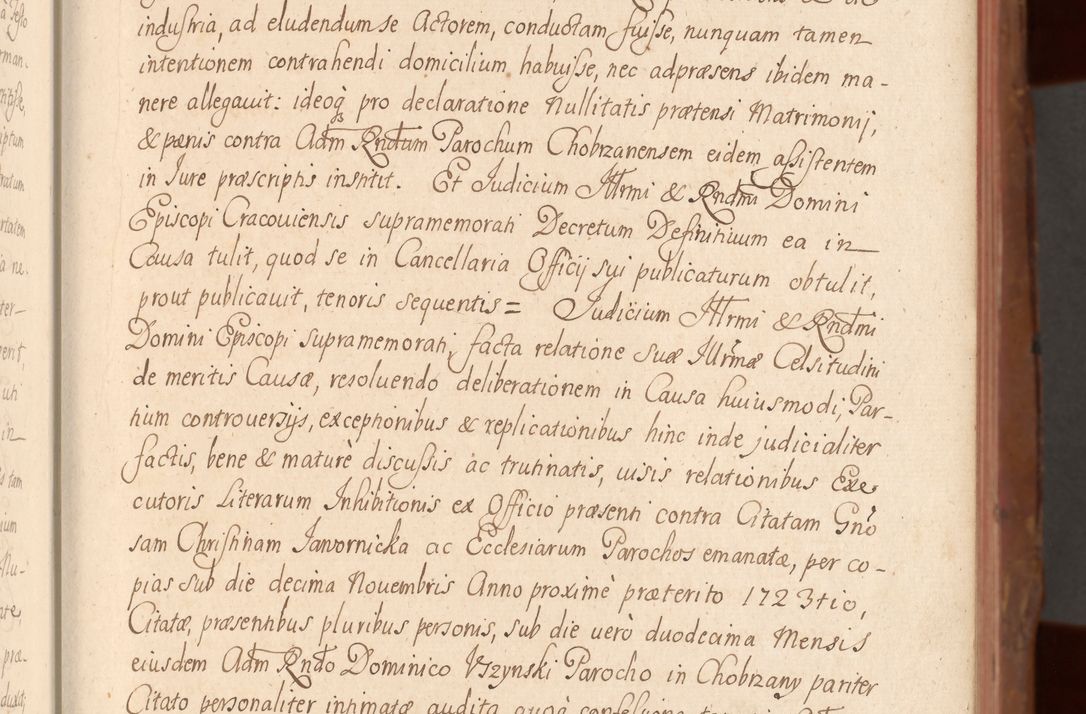 industria, ad eludendum se Actorem, conductam fuisse, nunquam tamen
intentionem contrahendi domicilium habuisse, nec ad præsens ibidem ma-
nere allegauit: ideoq̃ pro declaratione Nullitatis prætensi Matrimonij,
& pænis contra Adm Rndum Parochum Chobrzanensem eidem assistentem
in Iure præscriptis institit. Et Iudicium Illrmi & Rndmi Domini
Episcopi Cracouiensis supramemorati Decretum Definitiuum ea in
Causa tulit, quod se in Cancellaria Officij sui publicaturum obtulit,
prout publicauit, tenoris sequentis = Iudicium Illrmi & Rndmi
Domini Episcopi supramemorati, facta relatione suæ Illrmæ Celsitudini
de meritis Causæ, resoluendo deliberationem in Causa huiusmodi, Par-
tium controuersijs, exceptionibus & replicationibus hinc inde judicialiter
factis, bene & maturè discussis ac trutinatis, uisis relationibus Exe-
cutoris Literarum Inhibitionis ex Officio præsenti contra Citatam Gnõ
sam Christinam Jawornicka ac Ecclesiarum Parochos emanatæ, per co-
pias sub die decima Nouembris Anno proximè præterito 1723tio,
Citatæ, præsentibus pluribus personis, sub die uerò duodecima Mensis
eiusdem Adm Rndo Dominico Vszynski Parocho in Chobrzany pariter
Citato personaliter intimatæ audita